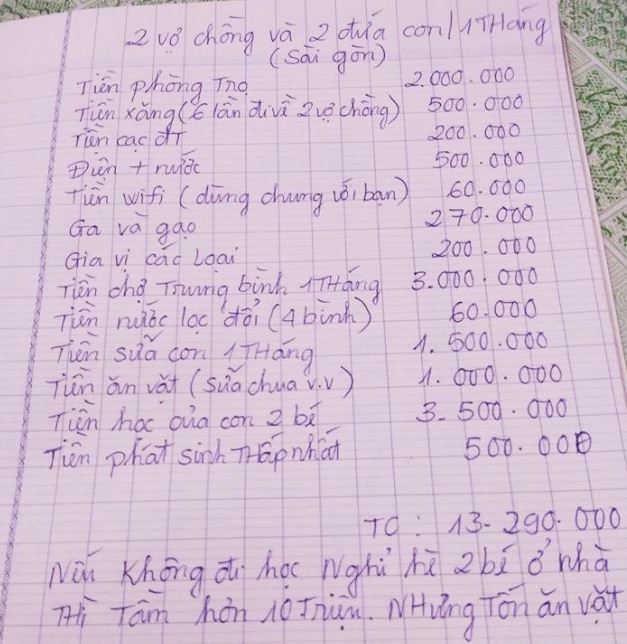 2 vợ chồng và 2 đứa con / 1 Tháng
(Sài gòn)
Tiền phòng Trọ 2.000.000
Tiền xăng (6 lần đi về 2 vợ chồng) 500.000
Tiền cạc ĐT 200.000
Điện + nước 500.000
Tiền wifi (dùng chung với bạn) 60.000
Ga và gạo 270.000
Gia vị các Loại 200.000
Tiền chợ Trung bình 1 Tháng 3.000.000
Tiền nước lọc đổi (4 bình) 60.000
Tiền sữa con 1 Tháng 1.500.000
Tiền ăn vặt (sữa chua v.v) 1.000.000
Tiền học của con 2 bé 3.500.000
Tiền phát sinh Thấp nhất 500.000
TC: 13.290.000
Nếu không đi học Nghỉ hè 2 bé ở nhà
Thì Tầm hơn 10 Triệu. Nhưng Tốn ăn vặt